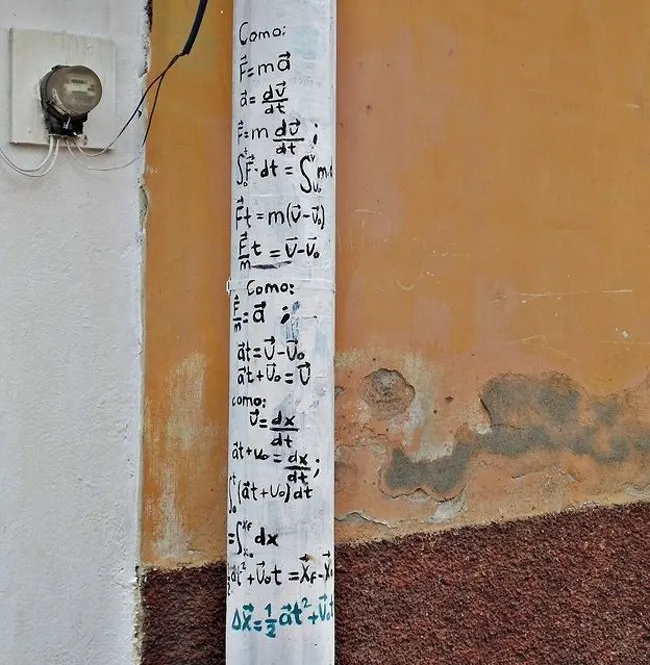 Como:
F⃗=ma⃗
a⃗=dv⃗/dt
F⃗=m dv⃗/dt ;
∫₀ᵗF⃗·dt = ∫ᵥ₀ᵛ m·
F⃗t = m(v⃗-v⃗₀)
F⃗/m t = v⃗-v⃗₀
Como:
F⃗/m=a⃗ ;
a⃗t=v⃗-v⃗₀
a⃗t+v⃗₀=v⃗
como:
v⃗=dx/dt
a⃗t+v₀=dx/dt;
∫₀ᵗ(a⃗t+v₀)dt
=∫ₓ₀ˣᶠ dx
½a⃗t²+v⃗₀t =x⃗f-x⃗
Δx⃗=½a⃗t²+v⃗₀t